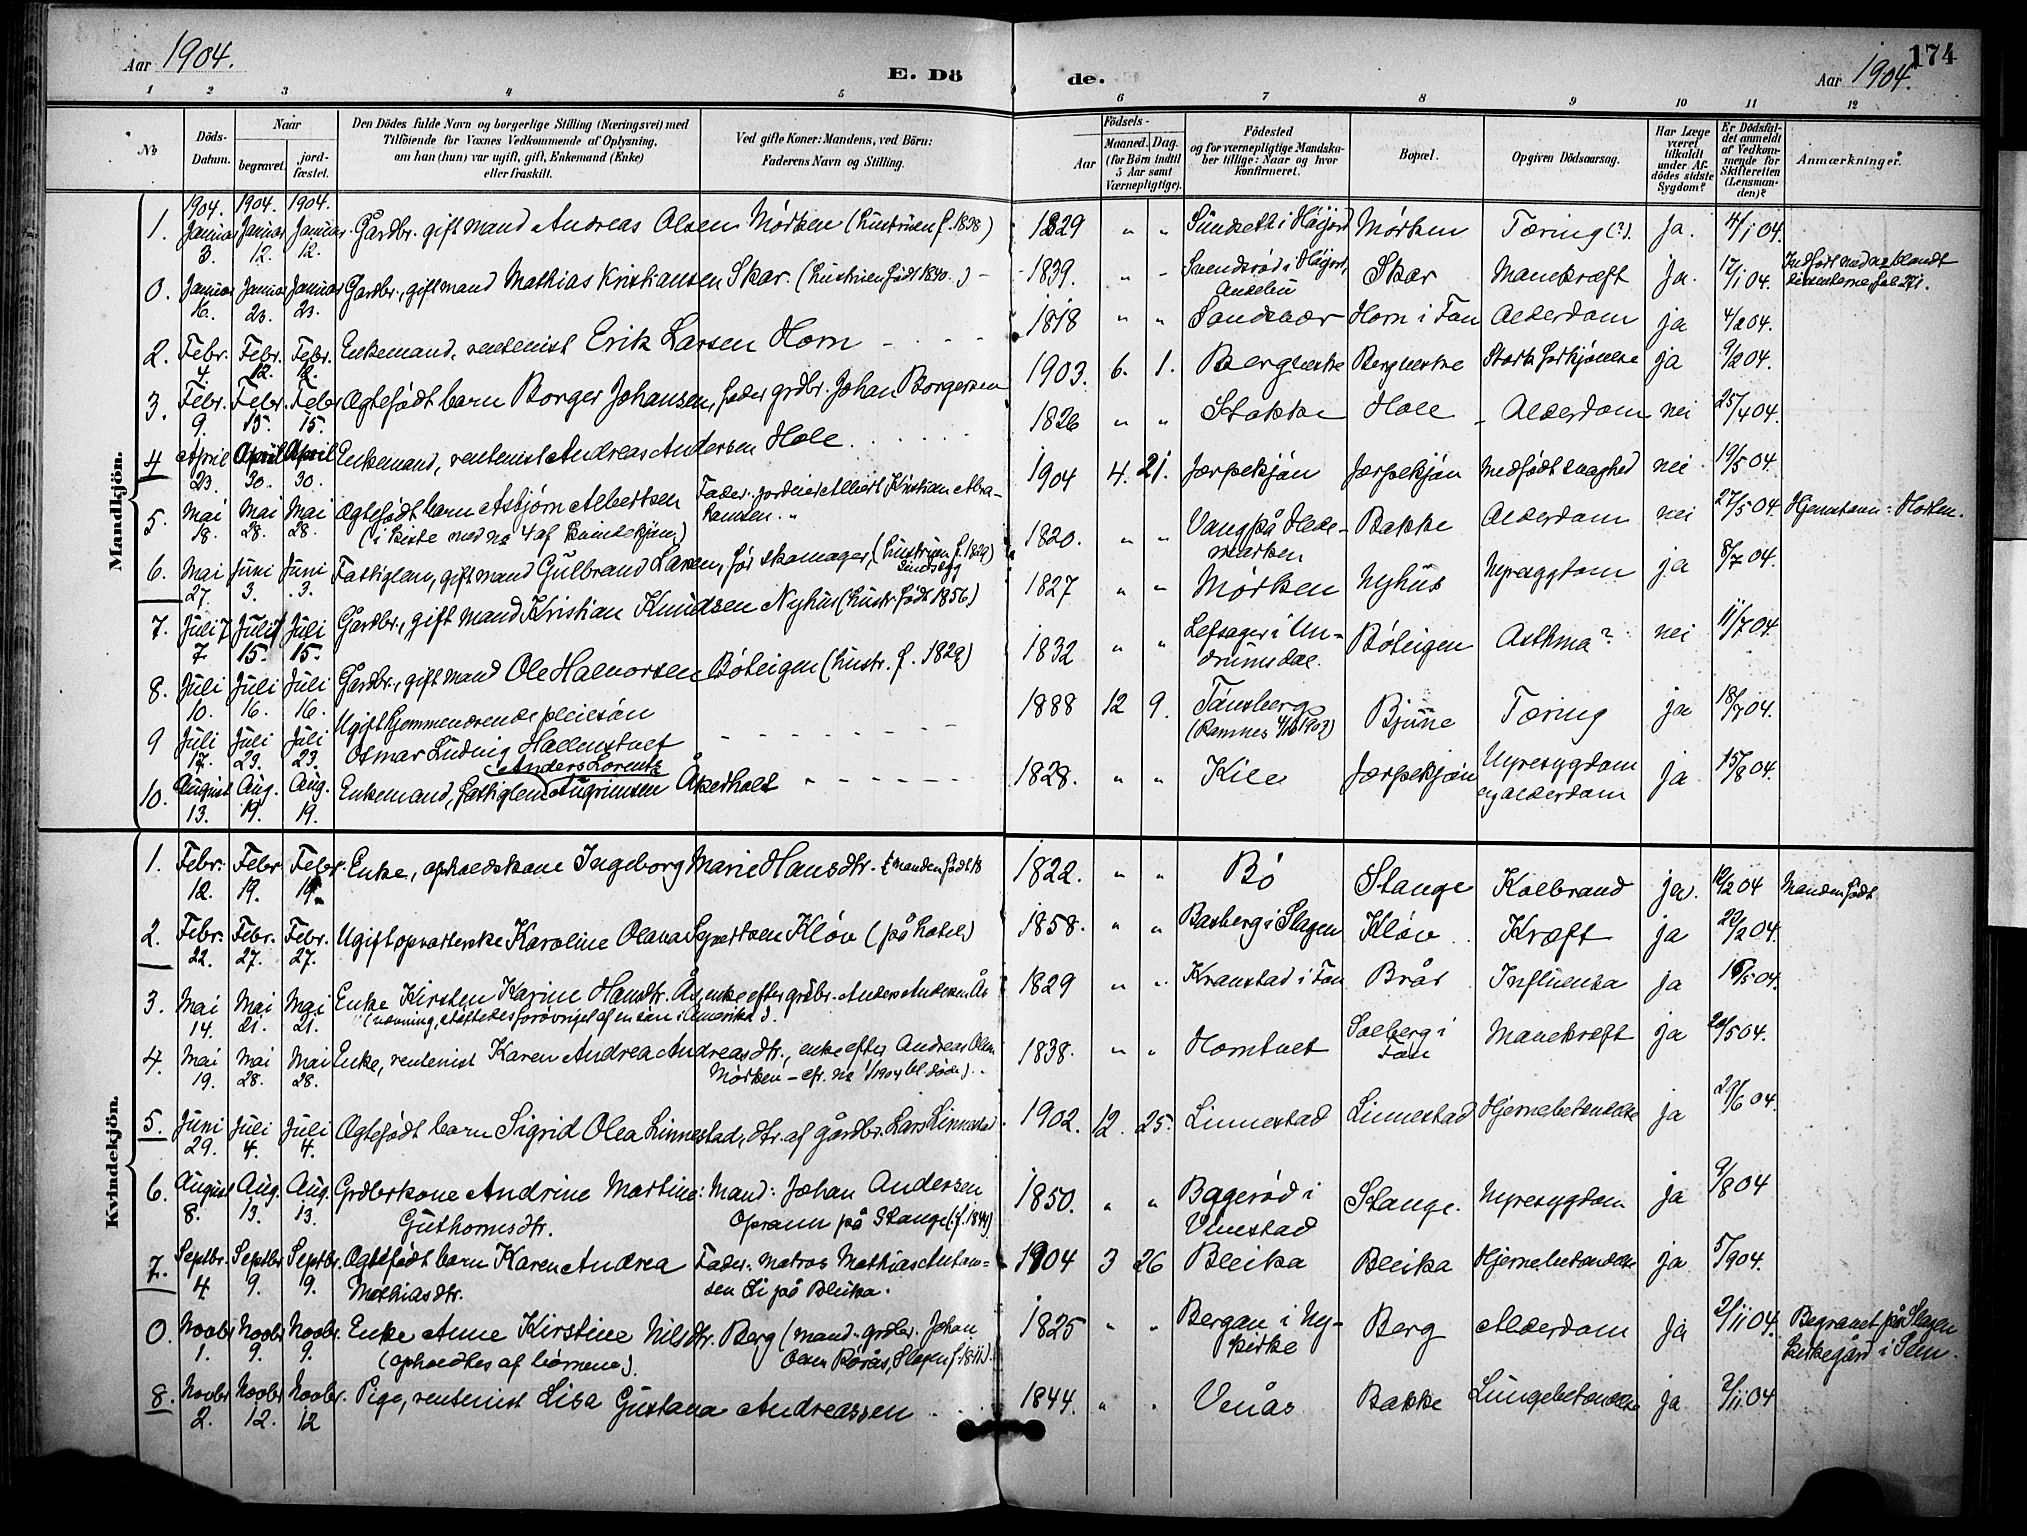 Aar 1904.
E. Dö de.
Aar 1904.
174
1 2 3 4 5 6 7 8 9 10 11 12
No
Döds-Datum.
Naar
begravet.
jordfæstet.
Den Dödes fulde Navn og borgerlige Stilling (Næringsvei) med
Tilföiende for Voxnes Vedkommende af Oplysning,
om han (hun) var ugift, gift, Enkemand (Enke)
eller fraskilt.
Ved gifte Koner: Mandens, ved Börn:
Faderens Navn og Stilling.
Födsels-
Aar
Maaned. Dag.
(for Börn indtil
5 Aar samt
Værnepligtige).
Födested
og for værnepligtige Mandskaber tillige: Naar og hvor
konfirmeret.
Bopæl.
Opgiven Dödsaarsag.
Har Læge
været
tilkaldt
under Afdödes sidste
Sygdom?
Er Dödsfaldet anmeldt
af Vedkommende for
Skifteretten
(Lensmanden)?
Anmærkninger.
Mandkjön.
1904. 1904. 1904.
1. Januar 3. Januar 12. Januar 12. Gardbr. gift mand Andreas Olsen Mørken (hustruen f. 1838) 1829 " " Sundseth i Høijord Mørken Tæring (?). Ja. 4/1 04.
0. Januar 16. Januar 23. Januar 23. Gardbr., gift mand Mathias Kristiansen Skar. (hustruen født 1840.) 1839. " - Svendsrød i Høijord, Andebu Skar Mavekræft Ja. 17/1 04. Indført nedre blandt
2. Febr. 4. Febr. 12. Febr. 12. Enkemand, rentenist Erik Larsen Horn 1818 " " Sandehær Horn i Fon Alderdom ja 4/2 04.
3. Febr. 9. Febr. 15. Febr. 15. Ægtefødt barn Borger Johansen, fader grdbr. Johan Borgersen 1903. 6. 1. Berg vestre Berg vestre Stærk forkjølelse ja 9/2 04.
4 April 23. April 30. April 30. Enkemand, rentenist Andreas Andersen Hole 1826 " " Stokke Hole Alderdom nei 25/4 04.
5. Mai 18. Mai 28. Mai 28. Ægtefødt barn Asbjørn Albertsen Fader: jordeier Albert Kristian Abrahamsen. 1904 4. 21. Jærpekjøn Jærpekjøn Medfødt svaghed nei 19/5 04.
(i kiste med no 4 af kvindekjøn)
6. Mai 27. Juni 3. Juni 3. Fattiglem, gift mand Gulbrand Larsen, før skomager, (hustruen f. 1829) 1820. " " Vang på Hedemarken Bakke Alderdom nei 27/5 04. Hjemstavn: Horten.
7. Juli 7 Juli 15. Juli 15. Gardbr., gift mand Kristian Knudsen Nyhus (hustr. født 1856) 1827 " " Mørken Nyhus Nyresygdom ja 8/7 04
8. Juli 10. Juli 16. Juli 16. Gardbr., gift mand Ole Halvorsen Bøleigen (hustr. f. 1829) 1832 " " Lefsager i Undrumsdal. Bøleigen Asthma? nei 11/7 04.
9 Juli 17. Juli 23. Juli 23. Ugift hjemmeværende pleiesøn Osmar Ludvig Hallenstvet 1888 12 9. Tønsberg (Ramnes 4/10 1903) Bjune Tæring ja 18/7 04.
10. August 13. Aug. 19. Aug. 19. Enkemand, fattiglem Anders Lorentz Augrimsen Åkerholt 1828. " " Kile Jærpekjøn Nyresygdom og alderdom ja 15/8 04.
Kvindekjön.
1. Febr. 12. Febr. 19. Febr. 19. Enke, opholdskone Ingeborg Marie Hansdtr. (manden født 1822. " " Bø Stange Kolbrand ja. 12/2 04 Manden født
2. Febr. 22. Febr. 27. Febr. 27. Ugift opvarterske Karoline Olava Syvertsen Kløv (på hotel) 1858. " " Basberg i Slagen Kløv Kræft ja 22/2 04.
3. Mai 14. Mai 21. Mai 21. Enke Kirsten Karine Hansdtr. Ås, enke efter grdbr. Anders Andersen Ås 1829 " " Kranstad i Fon Brår Influensa ja 15/5 04.
4. Mai 19. Mai 28. Mai 28. Enke, rentenist Karen Andrea Andreasdtr., enke efter Andreas Olsen 1838. " " Horntvet Solberg i Fon Mavekræft ja 20/5 04.
Mørken - cfr. no 1/1904 bl. døde).
5. Juni 29. Juli 4. Juli 4. Ægtefødt barn Sigrid Olea Linnestad, dtr. af gårdbr. Lars Linnestad 1902. 12. 25. Linnestad Linnestad Hjernebetændelse ja 29/6 04.
6. August 8. Aug. 13. Aug. 13. Grdbrkone Andrine Martine Guthormsdtr. Mand: Johan Andersen Opraun på Stange (f. 1844) 1850. " " Bagerød i Vivestad Stange. Nyresygdom ja 9/8 04
7. Septbr. 4. Septbr 9. Septbr. 9. Ægtefødt barn Karen Andrea Mathiasdtr. Fader: matros Mathias Antonsen Li på Bleika. 1904 3 26 Bleika Bleika Hjernebetændelse ja 5/9 04.
0. Novbr 1. Novbr 9. Novbr. 9. Enke Anne Kirstine Nilsdtr. Berg (mand: grdbr. Johan Olsen Borås, Slagen f. 1811). 1825 " " Bergan i Nykirke Berg Alderdom Ja 2/11 04. Begravet på Slagen kirkegård i Sem.
(opholdtes af børnene).
8. Novbr 2. Novbr 12. Novbr. 12 Pige, rentenist Lisa Gustava Andreassen 1844. " " Venås Bakke Lungebetændelse ja 3/11 04